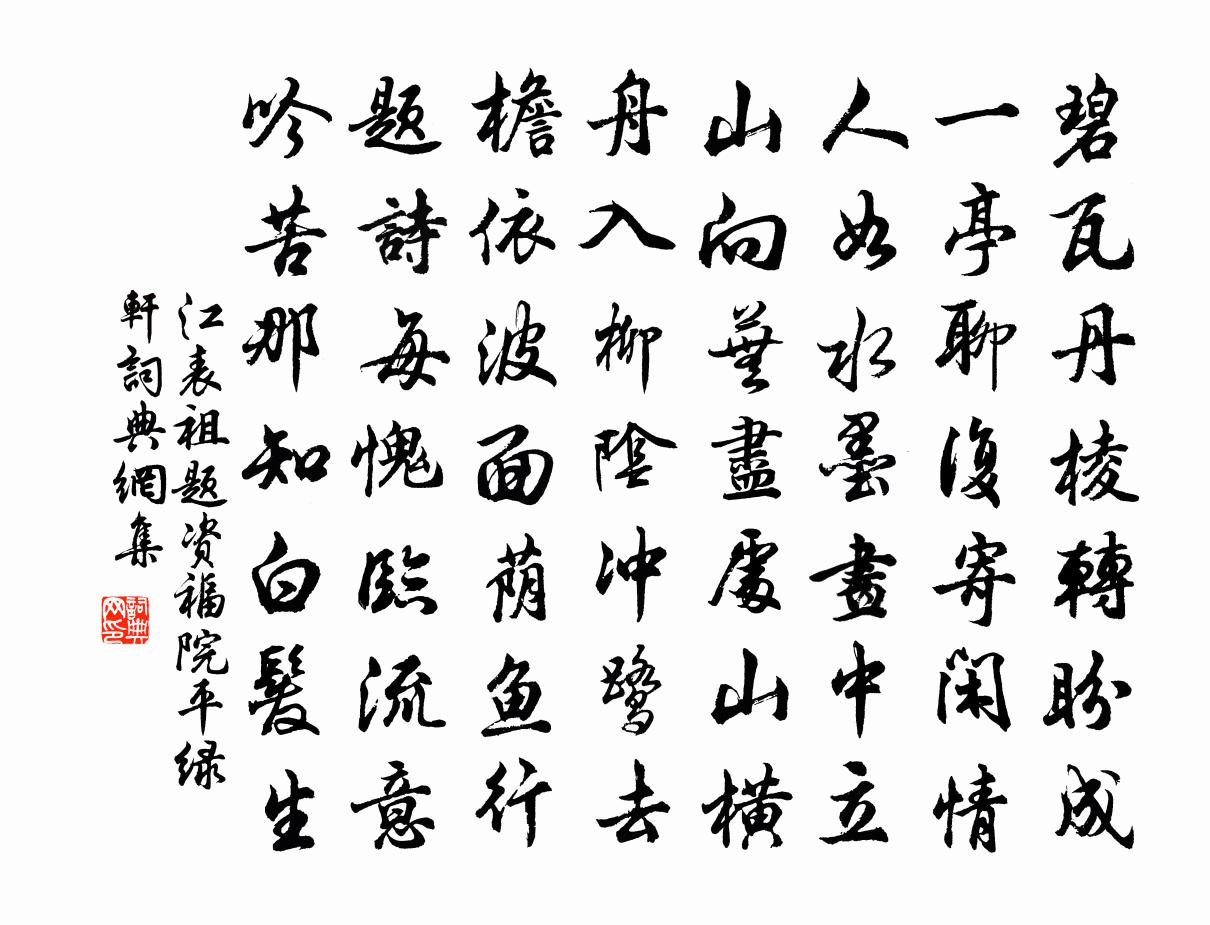 碧瓦丹棱轉盼成
一亭聊復寄閑情
人如水墨畫中立
山向蕪盡處山橫
舟入柳陰冲鹭去
檐依波面荫鱼行
題詩每愧臨流意
吟苦那知白髮生
江表祖题资福院平绿
軒詞典網集
詞典
网印